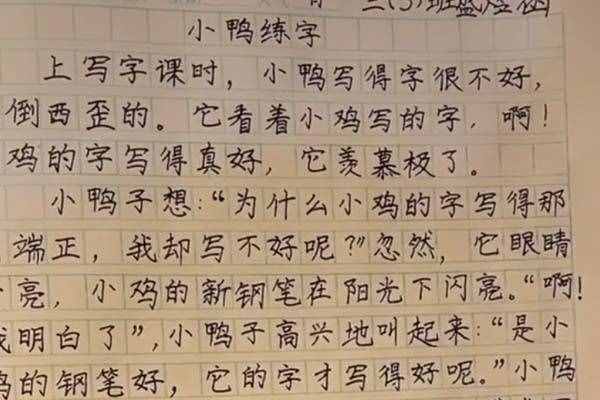 三(3)班盛
小鸭练字
上写字课时，小鸭写得字很不好，
倒西歪的。它看着小鸡写的字，啊！
鸡的字写得真好，它羡慕极了。
小鸭子想：“为什么小鸡的字写得那
端正，我却写不好呢？”忽然，它眼睛
亮，小鸡的新钢笔在阳光下闪亮。“啊！
我明白了”，小鸭子高兴地叫起来：“是小
鸡的钢笔好，它的字才写得好呢。”小鸭